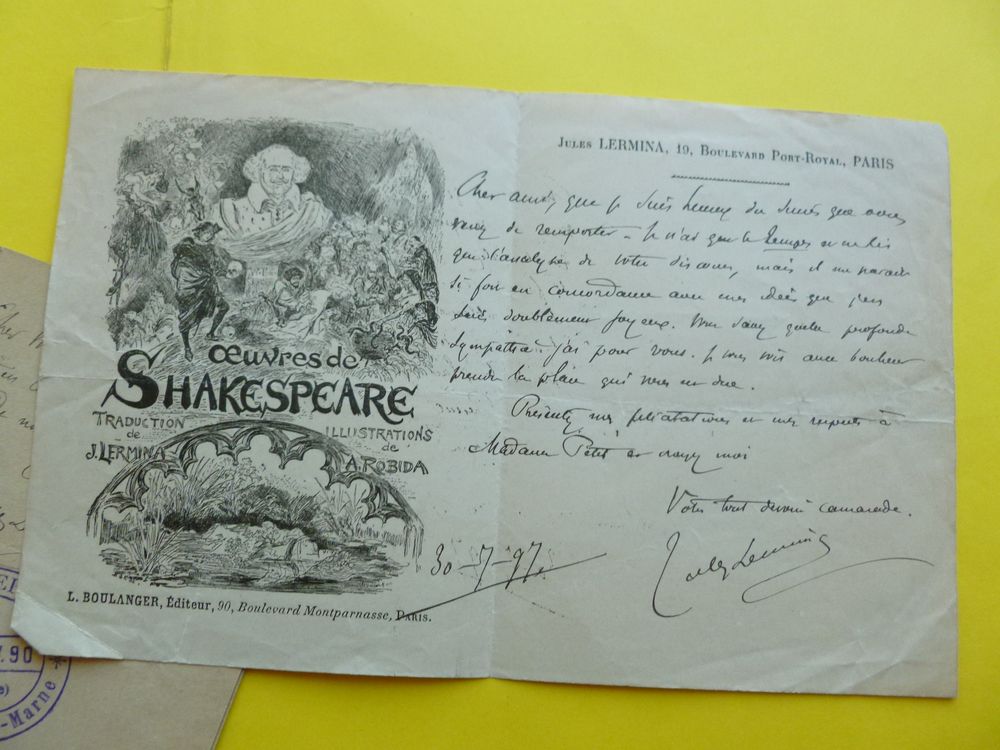 œuvres de
SHAKESPEARE
TRADUCTION
de
J. LERMINA
ILLUSTRATIONS
de
A. ROBIDA
L. BOULANGER, Éditeur, 90, Boulevard Montparnasse, PARIS.
JULES LERMINA, 19, BOULEVARD PORT-ROYAL, PARIS
Cher ami, que je suis heureux du succès que vous
venez de remporter. Je n'ai que le Temps et ne lis
que l'analyse de votre discours, mais il me paraît
si fort en concordance avec mes idées que j'en
suis doublement joyeux. Vous savez quelle profonde
sympathie j'ai pour vous. Je vous vois avec bonheur
prendre la place qui vous est due.
Présentez mes félicitations et mes respects à
Madame Petit et croyez moi
Votre tout dévoué camarade.
Jules Lermina
30-7-97.
.90
-Marne